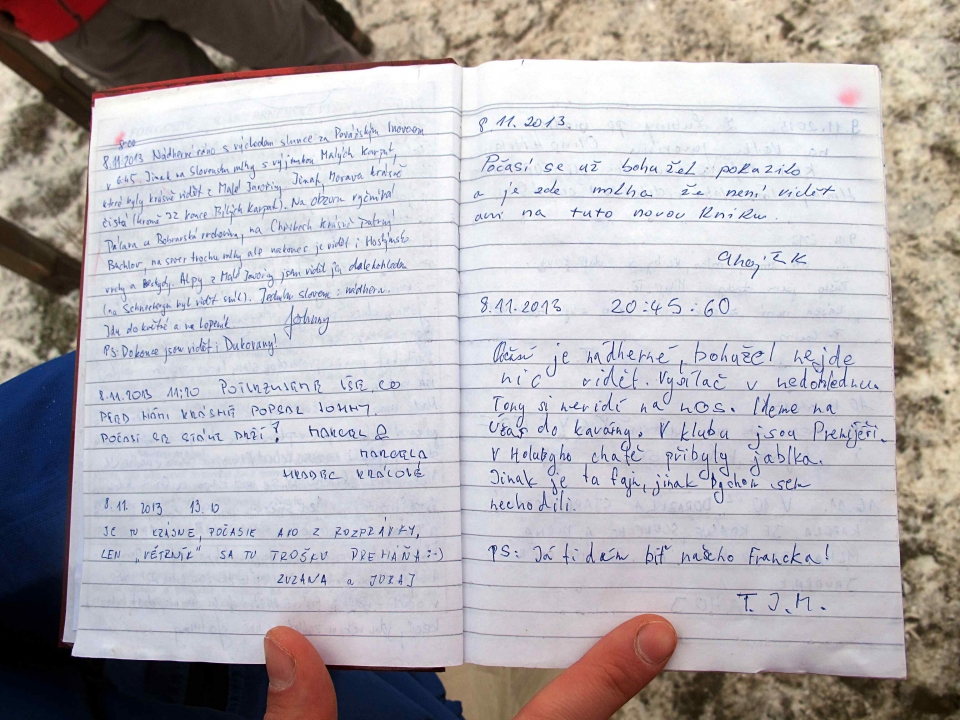 8.11.2013 Nádherné ráno s východem slunce za Považským Inovcem
v 6:45. Jinak na Slovensku mlhy s výjimkou Malých Karpat,
které byly krásně vidět z Malé Javořiny. Jinak Morava krásně
čistá (kromě JZ konce Bílých Karpat). Na obzoru
Pálava a na Chřibech krásně patrný
Buchlov, na sever trochu mlhy ale nakonec je vidět i Hostýnské
vrchy a Beskydy. Alpy z Malé Javořiny jsou vidět jen dalekohledem
(na Schneebergu byl vidět sníh). Jedním slovem: nádhera.
Jdu do květné a na Lopeník Johnny
PS: Dokonce jsou vidět i Dukovany!
8.11.2013 11:20 POTVRZUJEME VŠE, CO
PŘED NÁMI KRÁSNĚ POPSAL JOHNY.
POČASÍ SE STÁLE DRŽÍ! MARCEL &
MARCELA
HRADEC KRÁLOVÉ
8.11. 2013 13.10
JE TU KRÁSNE, POČASIE AKO Z ROZPRÁVKY,
LEN „VĚTRNÍK" SA TU TROŠKU PREHÁŇA :-)
ZUZANA a JURAJ
8.11.2013
Počasí se už bohužel pokazilo
a je zde mlha že není vidět
ani na tuto novou knihu.
Ahoj ZK
8.11.2013 20:45:60
Počasí je nádherné, bohužel nejde
nic vidět. Vysílač v nedohlednu.
Tony si nevidí na nos. Jdeme na
do kavárny. V klubu jsou Premijéři.
V Holubyho chatě přibyly jablka.
Jinak je ta fajn, jinak bychom sem
nechodili.
PS: Já ti dám biť našeho Francka!
T. J. M.